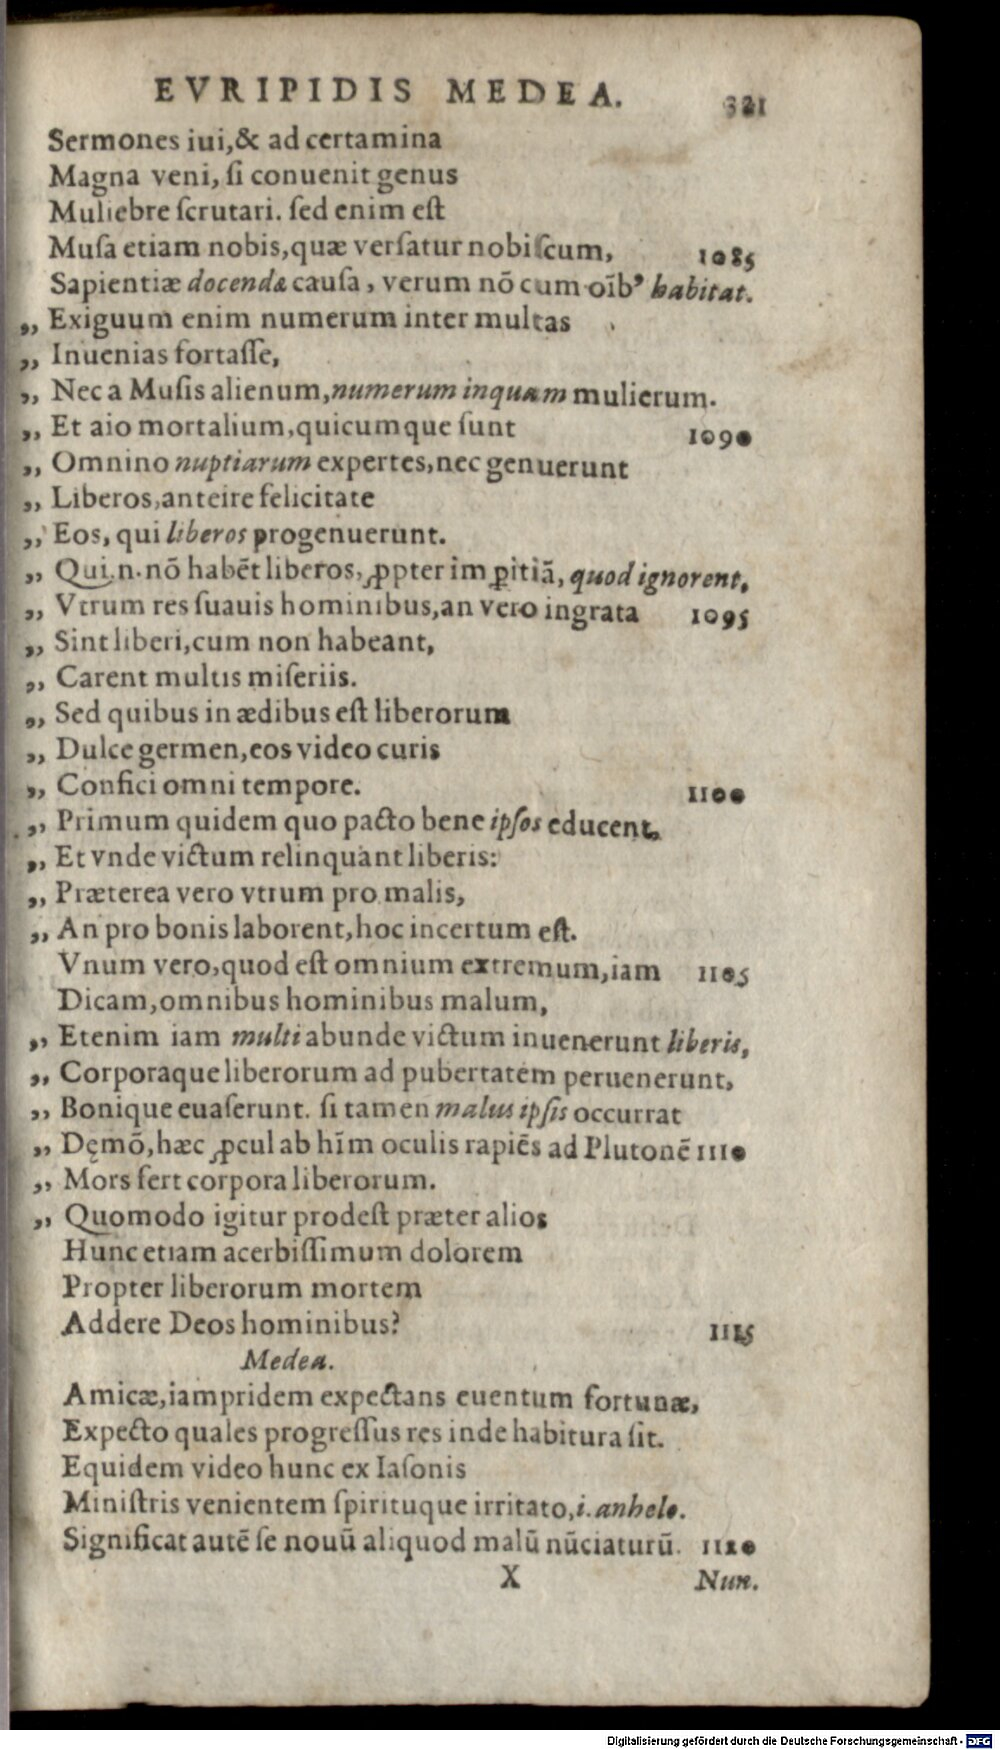 EVRIPIDIS MEDEA. 321
Sermones iui,& ad certamina
Magna veni, ſi conuenit genus
Muliebre ſcrutari. ſed enim eſt
Muſa etiam nobis,quæ verſatur nobiſcum, 1085
Sapientiæ docendæ cauſa, verum nō cum oīb’ habitat.
„ Exiguum enim numerum inter multas
„ Inuenias fortaſſe,
„ Nec a Muſis alienum,numerum inquam mulierum.
„ Et aio mortalium,quicumque ſunt 1090
„ Omnino nuptiarum expertes,nec genuerunt
„ Liberos,anteire felicitate
„ Eos, qui liberos progenuerunt.
„ Qui.n.nō habēt liberos, ꝓpter imꝑitiā, quod ignorent,
„ Vtrum res ſuauis hominibus,an vero ingrata 1095
„ Sint liberi,cum non habeant,
„ Carent multis miſeriis.
„ Sed quibus in ædibus eſt liberorum
„ Dulce germen,eos video curis
„ Confici omni tempore. 1100
„ Primum quidem quo pacto bene ipſos educent,
„ Et vnde victum relinquant liberis:
„ Præterea vero vtrum pro malis,
„ An pro bonis laborent,hoc incertum eſt.
Vnum vero,quod eſt omnium extremum,iam 1105
Dicam,omnibus hominibus malum,
„ Etenim iam multi abunde victum inuenerunt liberis,
„ Corporaque liberorum ad pubertatem peruenerunt,
„ Bonique euaſerunt. ſi tamen malus ipſis occurrat
„ Dęmō,hæc ꝓcul ab hīm oculis rapiēs ad Plutonē 1110
„ Mors fert corpora liberorum.
„ Quomodo igitur prodeſt præter alios
Hunc etiam acerbiſſimum dolorem
Propter liberorum mortem
Addere Deos hominibus? 1115
Medea.
Amicæ,iampridem expectans euentum fortunæ,
Expecto quales progreſſus res inde habitura ſit.
Equidem video hunc ex Iaſonis
Miniſtris venientem ſpirituque irritato,i. anhelo.
Significat autē ſe nouū aliquod malū nūciaturū. 1120
X Nun.
Digitalisierung gefördert durch die Deutsche Forschungsgemeinschaft - DFG